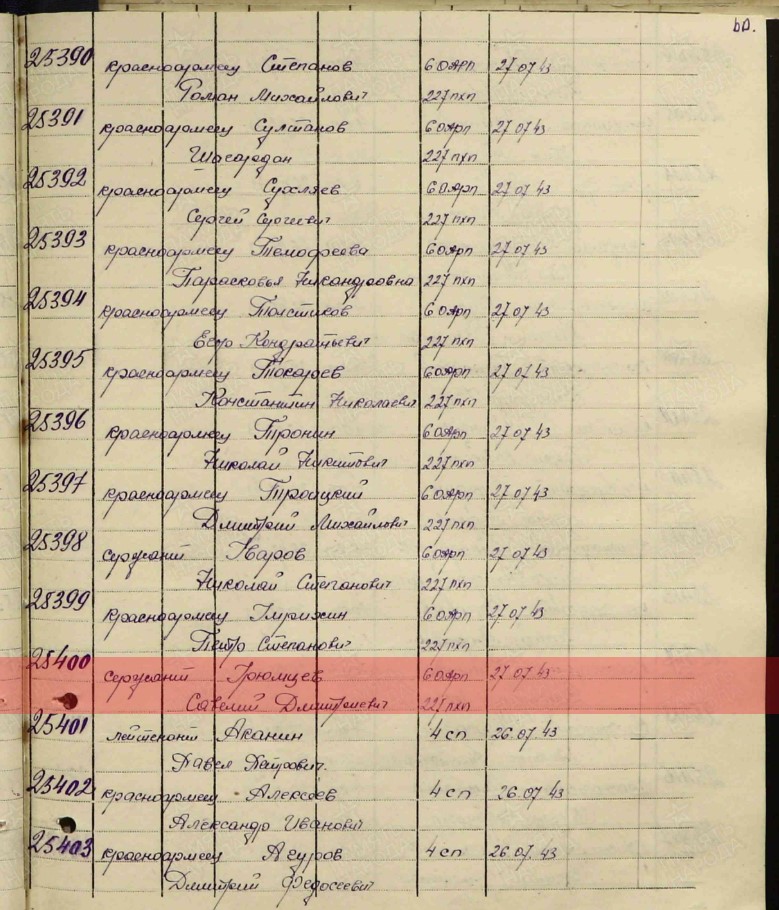 60.
25390 красноармеец Степанов 60 ЯРП 27 07 43
Роман Михайлович 227 пхп
25391 красноармеец Султанов 60 ярп 27 07 43
227 пхп
25392 красноармеец 60 ярп 27 07 43
Сергей Сергеевич 227 пхп
25393 красноармеец 60 ярп 27 07 43
Парасковья Никандровна 227 пхп
25394 красноармеец Толстиков 60 ярп 27 07 43
Егор Кондратьевич 227 пхп
25395 красноармеец Токарев 60 ярп 27 07 43
Константин Николаевич 227 пхп
25396 красноармеец Тронин 60 ярп 27 07 43
Николай Никитович 227 пхп
25397 красноармеец Троицкий 60 ярп 27 07 43
Дмитрий Михайлович 227 пхп
25398 сержант Уваров 60 ярп 27 07 43
Николай Степанович 227 пхп
25399 красноармеец 60 ярп 27 07 43
Петр Степанович 227 пхп
25400 сержант 60 ярп 27 07 43
Савелий Дмитриевич 227 пхп
25401 лейтенант Аканин 4 сп 26.07.43
Павел Петрович.
25402 красноармеец Алексеев 4 сп 26.07 43
Александр Иванович
25403 красноармеец Агуров 4 сп 26.07.43
Дмитрий Федосеевич